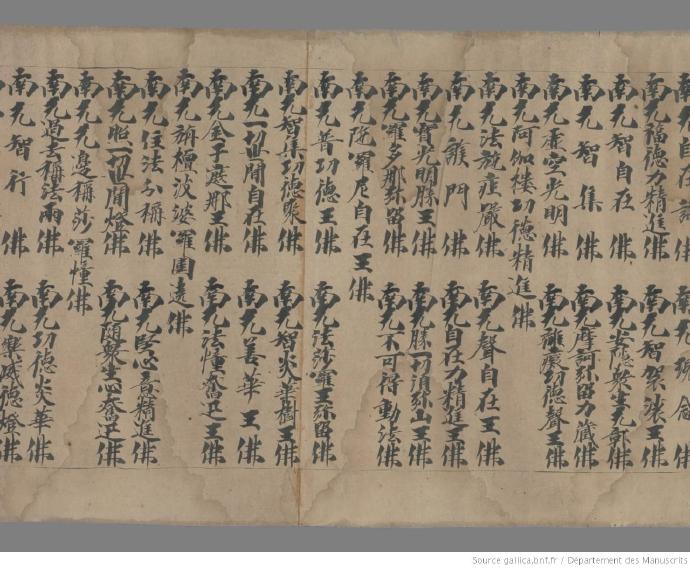 南无自在
南无 佛
南无福德力精進佛
南无智 王佛
南无智自在佛
南无安隱衆生无 佛
南无智集佛
南无摩訶弥留力藏佛
南无虛空光明佛
南无 功德聲王佛
南无阿伽樓功德精進佛
南无法 莊嚴佛
南无聲自在王佛
南无 門佛
南无自在力精進王佛
南无寶光明勝王佛
南无勝一切須弥山王佛
南无羅多那弥留佛
南无不可得動法佛
南无陁羅尼自在王佛
南无普功德王佛
南无法莎羅王弥留佛
南无智集功德聚佛
南无智炎華樹王佛
南无一切世間自在佛
南无善華王佛
南无金子遮那王佛
南无法幢奮迅王佛
南无旃檀波婆羅圍遶佛
南无住法分稱佛
南无堅心善精進佛
南无照一切世間燈佛
南无隨衆生心奮迅佛
南无无邊稱莎羅幢佛
南无過去稱法雨佛
南无功德炎華佛
南无智行佛
南无樂威德燈佛
Source gallica.bnf.fr / Département des Manuscrits